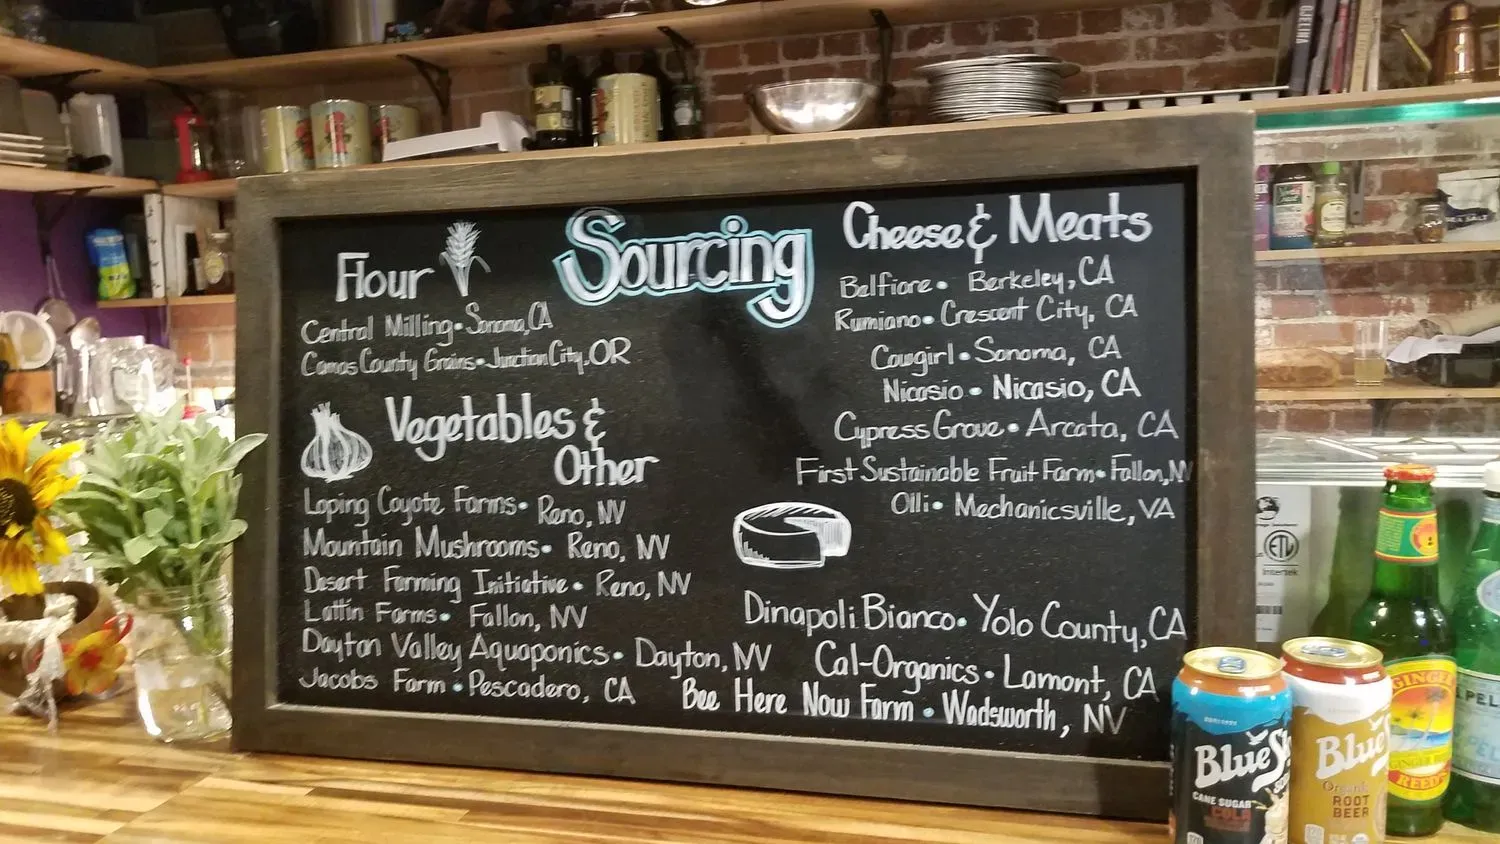 Sourcing
Flour
Central Milling • Sonoma, CA
Camas County Grains • Junction City, OR
Vegetables &
Other
Loping Coyote Farms • Reno, NV
Mountain Mushrooms • Reno, NV
Desert Farming Initiative • Reno, NV
Lattin Farms • Fallon, NV
Dayton Valley Aquaponics • Dayton, NV
Jacobs Farm • Pescadero, CA
Cheese & Meats
Belfiore • Berkeley, CA
Rumiano • Crescent City, CA
Cowgirl • Sonoma, CA
Nicasio • Nicasio, CA
Cypress Grove • Arcata, CA
First Sustainable Fruit Farm • Fallon, NV
Olli • Mechanicsville, VA
Dinapoli Bianco • Yolo County, CA
Cal-Organics • Lamont, CA
Bee Here Now Farm • Wadsworth, NV
GJELINA
SEA SALT
ETL
Intertek
Blue Sk
CANE SUGAR
COLA
Blue
Organic
ROOT
BEER
GINGER
REED'S